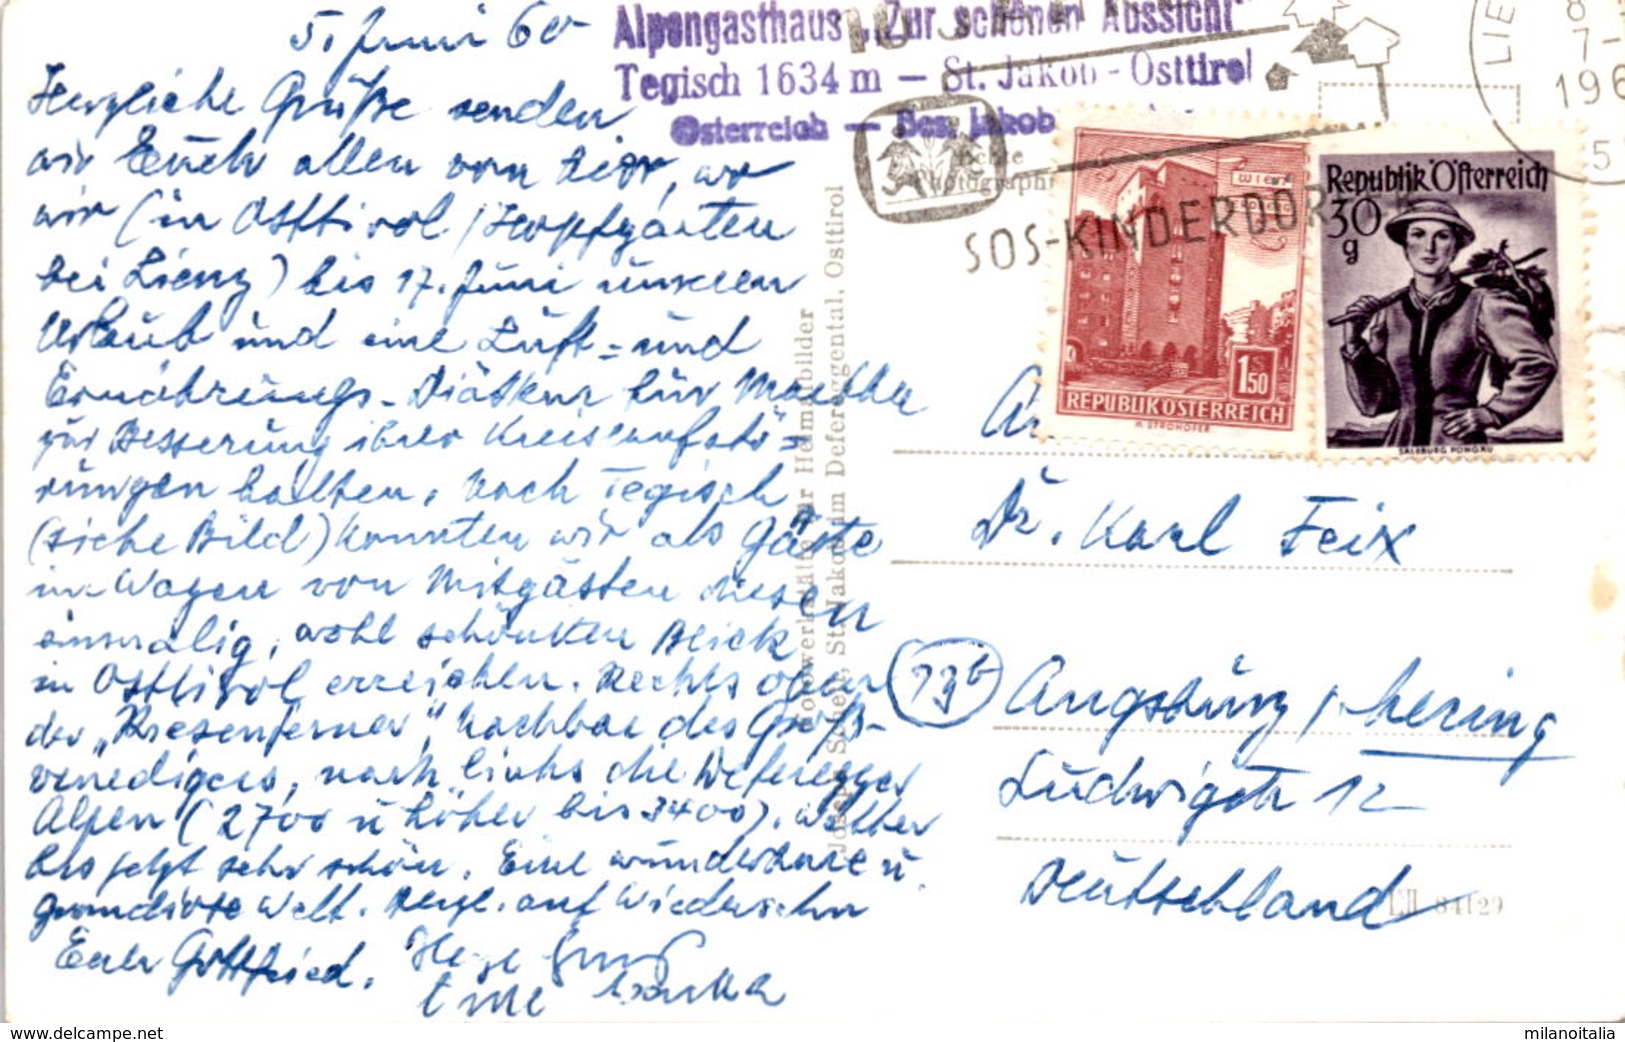 5. Juni 60
Herzliche Grüße senden
wir Euch allen von hier, wo
wir (in Osttirol / Hopfgarten
bei Lienz) bis 17. Juni unseren
Urlaub und eine Luft- und
Ernährungs-Diätkur für Martha
zur Besserung ihrer Kreislaufstö=
rungen halten. Nach Tegisch
(siehe Bild) konnten wir als Gäste
im Wagen von Mitgästen diesen
einmalig, wohl schönsten Blick
in Osttirol erreichen. Rechts oben
der „Riesenferner", Nachbar des Groß-
venedigers, nach links die Deferegger
Alpen (2700 u höher bis 3400). Wetter
bis jetzt sehr schön. Eine wunderbare u.
grandiose Welt. Herzl. auf Wiedersehn
Euer Gottfried. Herzl. Gruß
Martha
Alpengasthaus „Zur schönen Aussicht"
Tegisch 1634 m — St. Jakob - Osttirol
Österreich — Bes. Jakob
Echte
Photographi
SOS-KINDERDOR
LIE
8
7-
196
5
WIEN
1 50
REPUBLIK ÖSTERREICH
H. STROHOFER
Republik Österreich
30
g
SALZBURG PONGAU
An
Dr. Karl Feix
13b
Augsburg / Mering
Ludwigstr 12
Deutschland
L II 84129
Fotowerkstätte für Heimatbilder
Josef Schett, St. Jakob im Defereggental, Osttirol
milanoitalia
www.delcampe.net